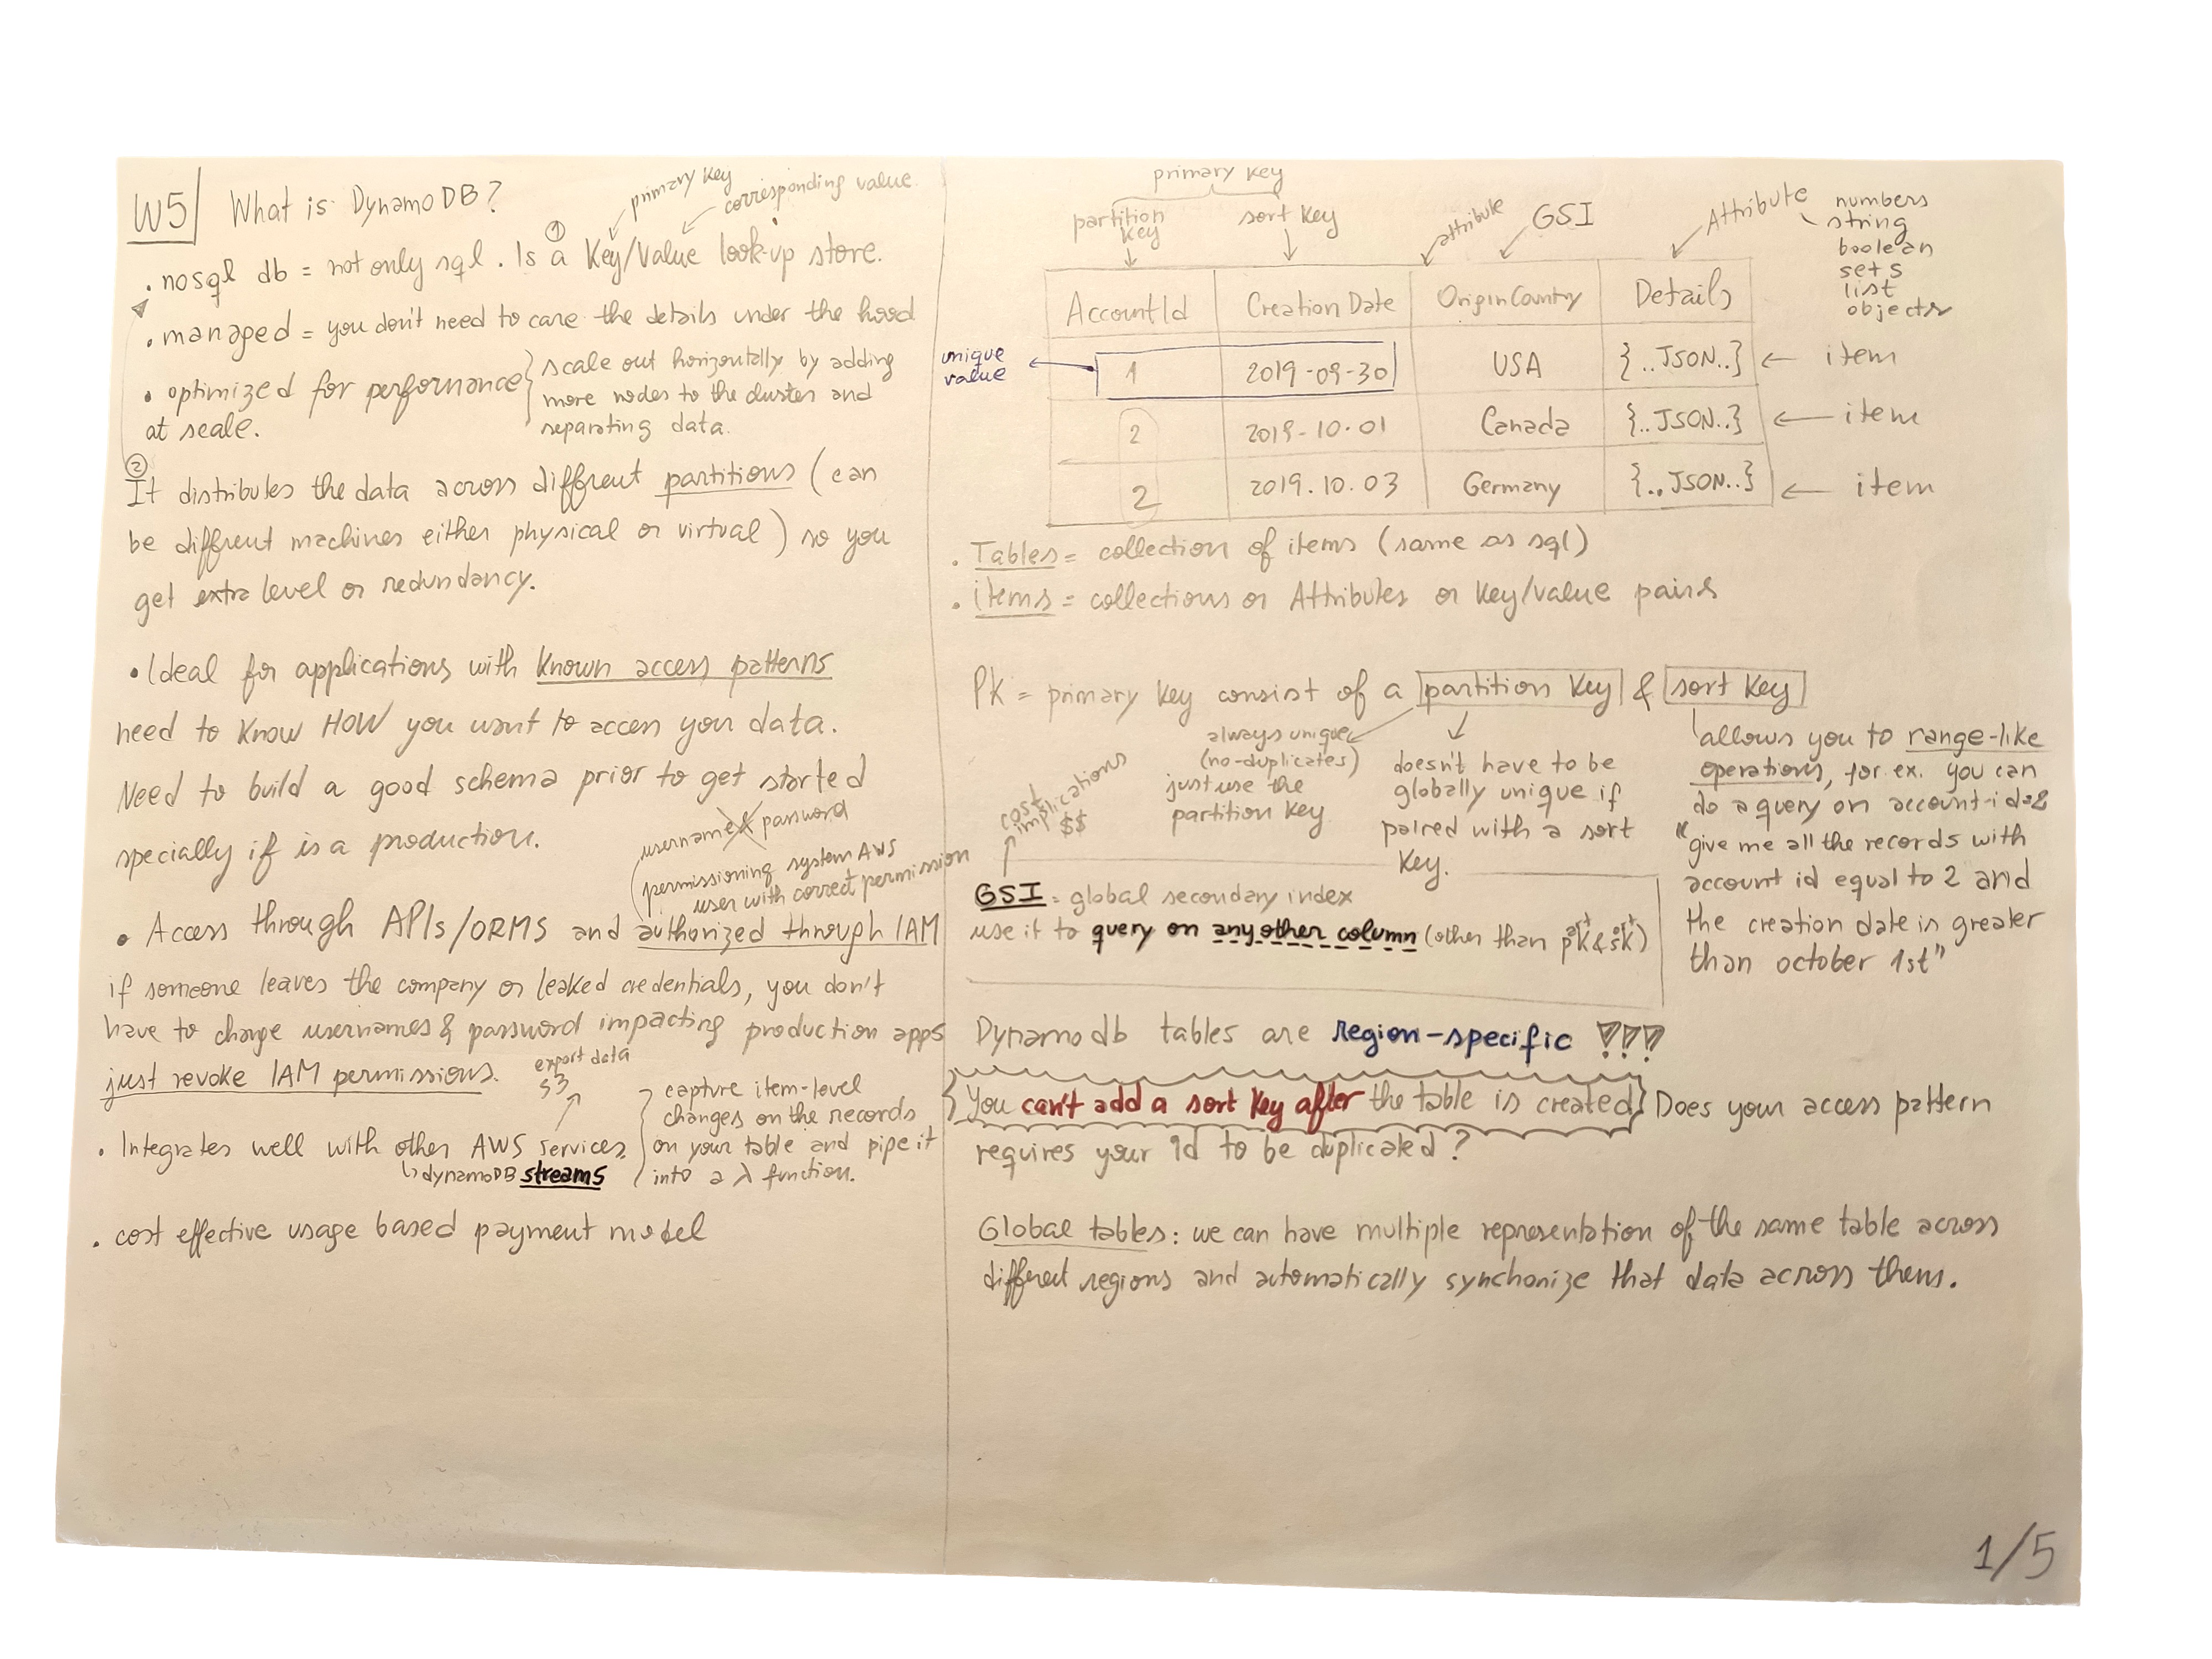 W5 What is DynamoDB?
primary key
corresponding value
①
. nosql db = not only sql. Is a Key/Value look-up store.
. managed = you don't need to care the details under the hood
• optimized for performance
at scale.
scale out horizontally by adding
more nodes to the cluster and
separating data.
②
It distributes the data across different partitions (can
be different machines either physical or virtual) so you
get extra level or redundancy.
• Ideal for applications with known access patterns
need to know HOW you want to access your data.
Need to build a good schema prior to get started
specially if is a production.
username & password
permissioning system AWS
user with correct permission
• Access through APIs/ORMS and authorized through IAM
if someone leaves the company or leaked credentials, you don't
have to change usernames & password impacting production apps
just revoke IAM permissions.
export data
S3
. Integrates well with other AWS services.
dynamoDB streams
capture item-level
changes on the records
on your table and pipe it
into a λ function.
. cost effective usage based payment model
primary key
partition
key
sort key
attribute
GSI
Attribute
numbers
string
boolean
sets
list
objects
AccountId Creation Date OriginCountry Details
unique
value
1 2019-09-30 USA {..JSON..} ← item
2 2019-10-01 Canada {..JSON..} ← item
2 2019.10.03 Germany {..JSON..} ← item
. Tables = collection of items (same as sql)
. items = collections or Attributes or key/value pairs
PK = primary key consist of a partition key & sort key
always unique
(no-duplicates)
just use the
partition key
doesn't have to be
globally unique if
paired with a sort
key.
allows you to range-like
operations, for ex. you can
do a query on account-id=2
"give me all the records with
account id equal to 2 and
the creation date is greater
than october 1st"
cost
implications
$$
GSI = global secondary index
use it to query on any other column (other than part k & sort k)
Dynamo db tables are region-specific !!!
You can't add a sort key after the table is created. Does your access pattern
requires your id to be duplicated?
Global tables: we can have multiple representation of the same table across
different regions and automatically synchonize that data across them.
1/5